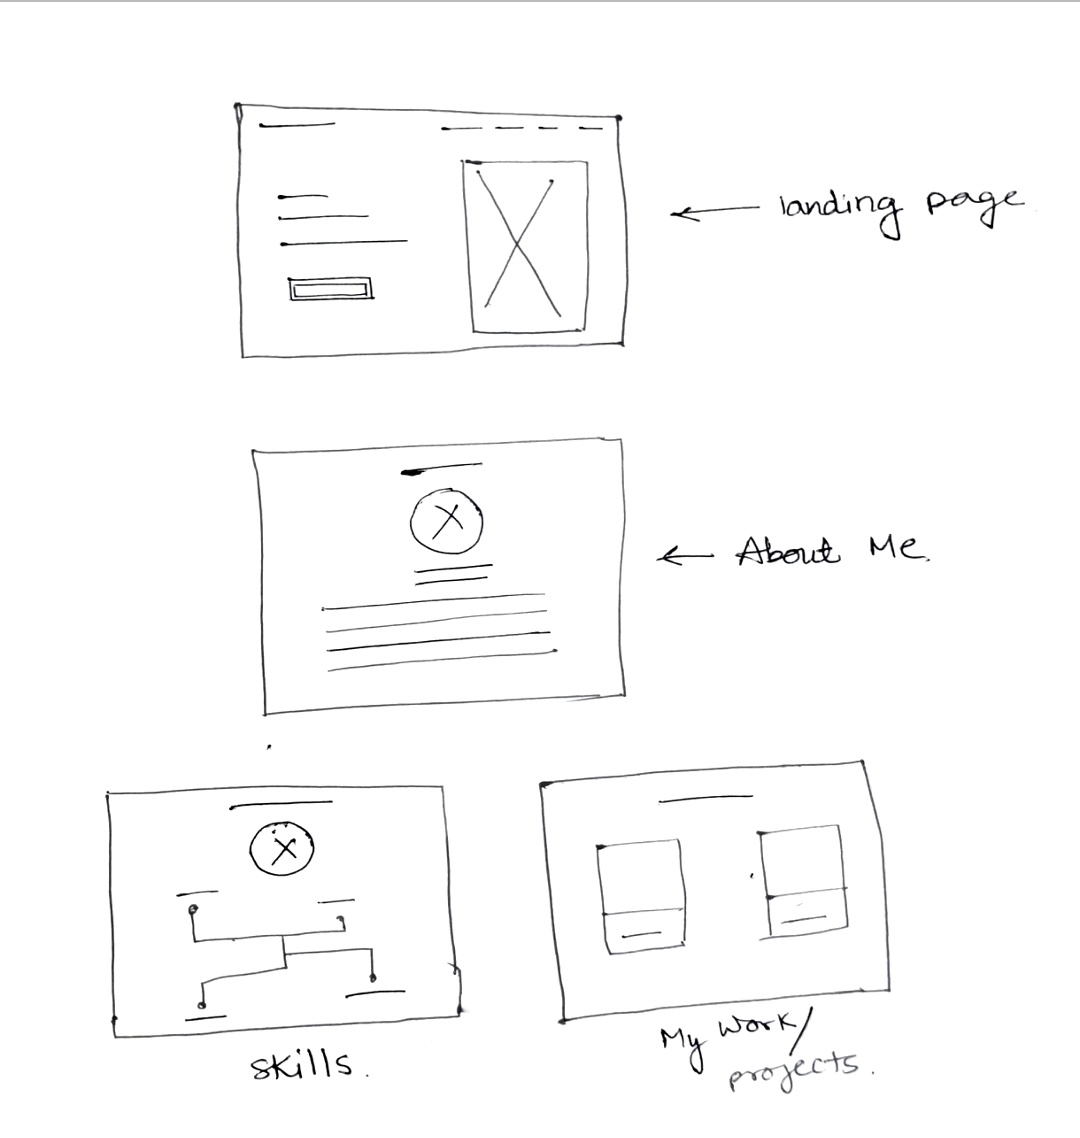 landing page
About Me.
skills.
My work/
projects.